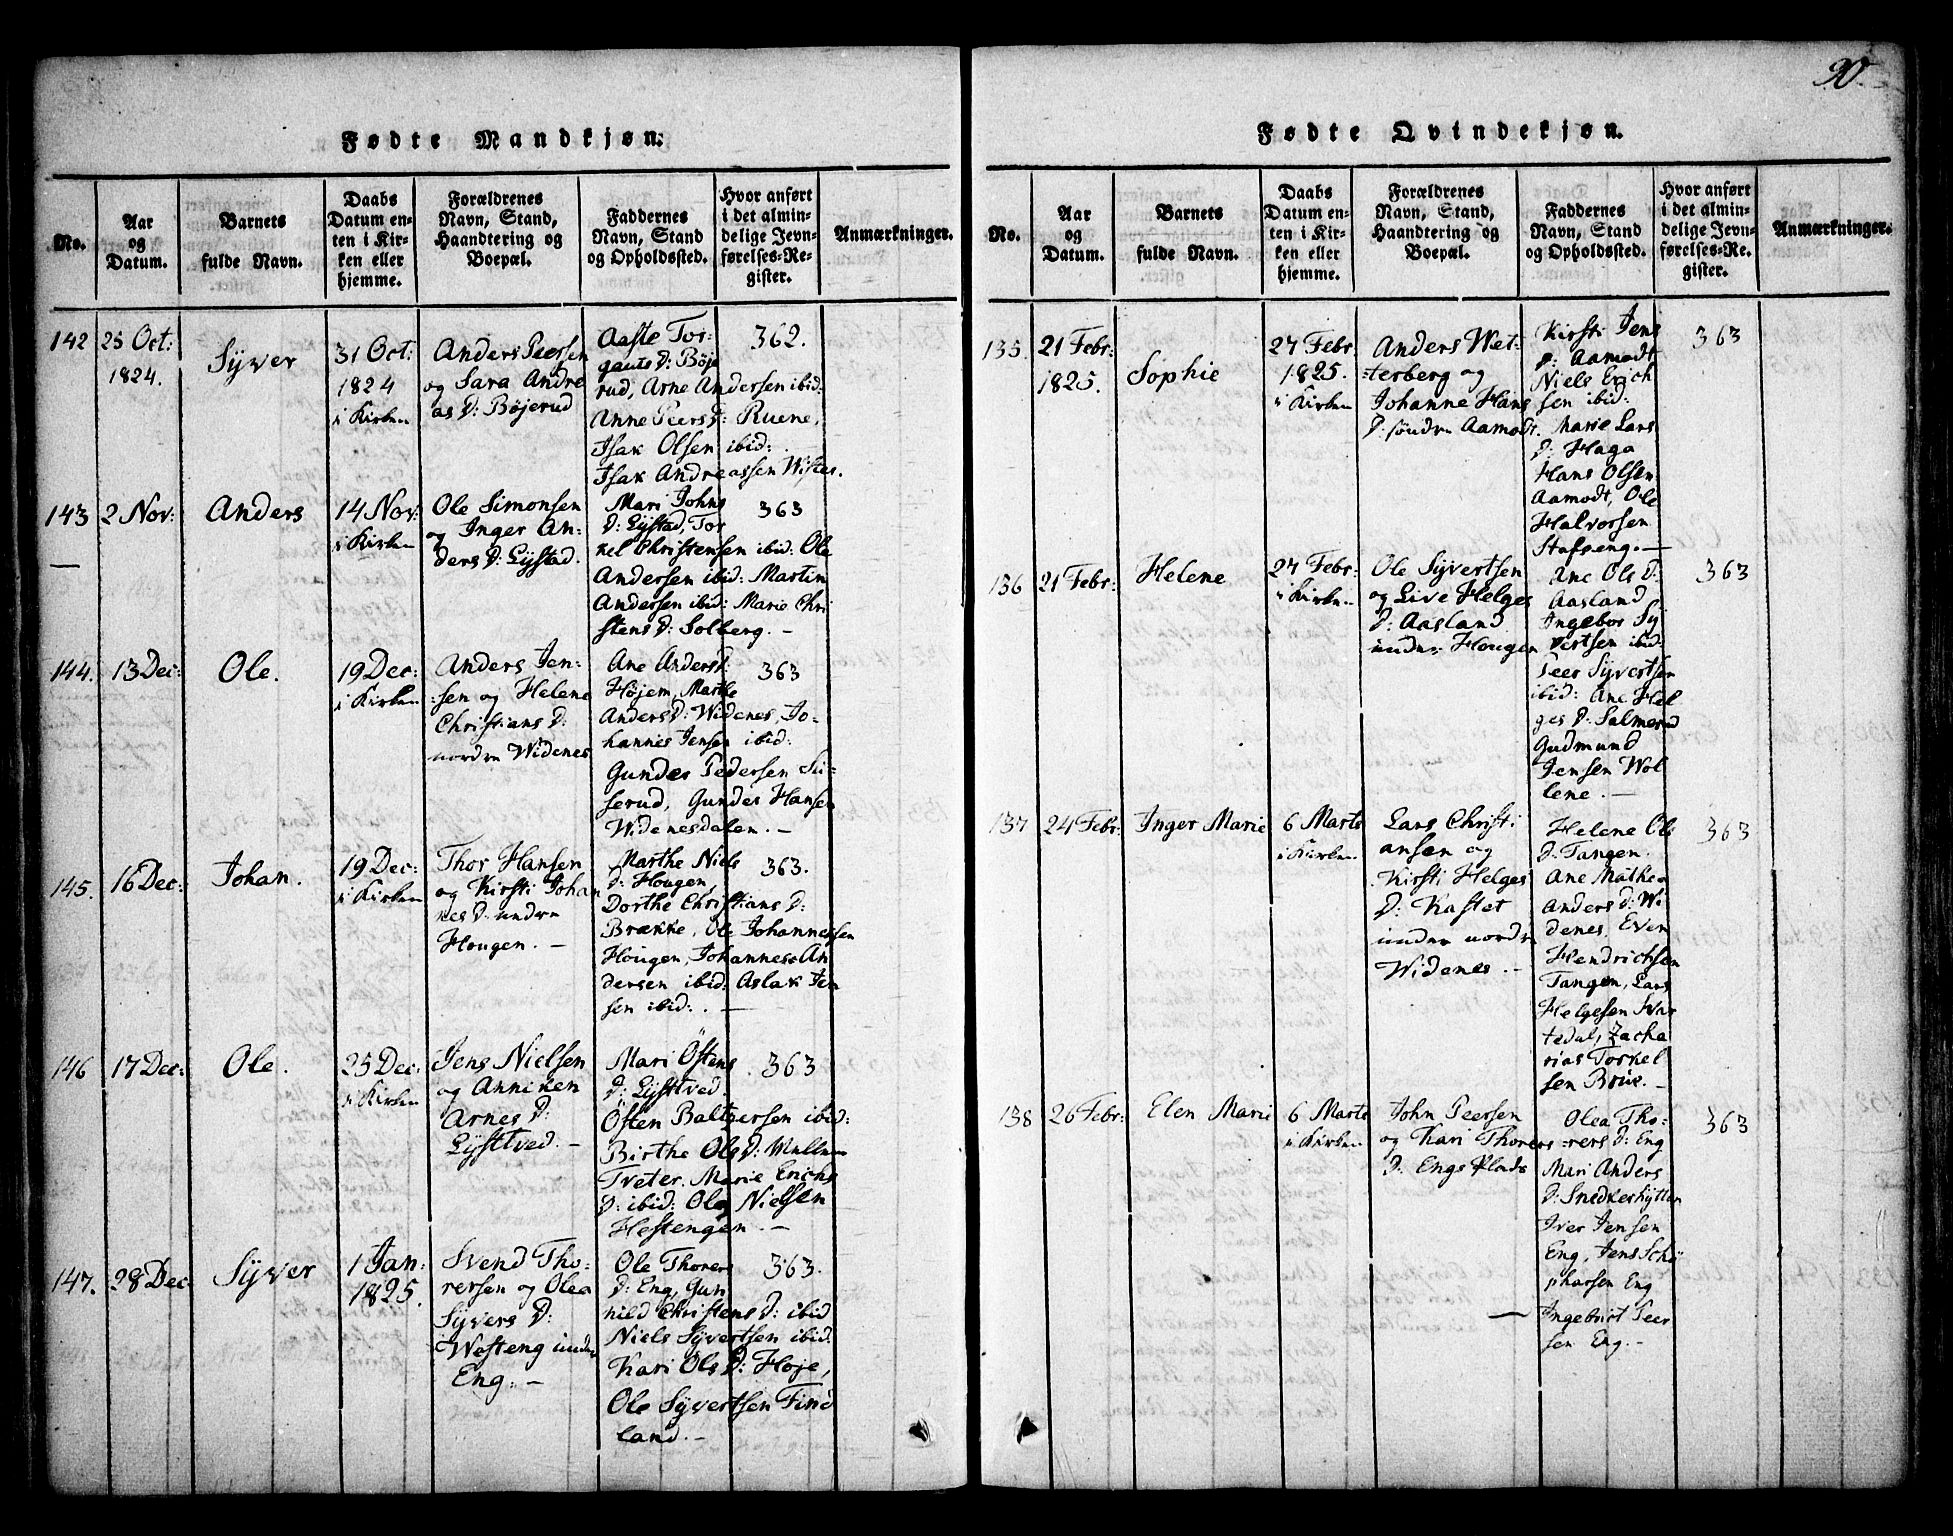 90.
Fødte Mandkjøn.
No.
Aar
og
Datum.
Barnets
fulde Navn.
Daabs
Datum en-
ten i Kir-
ken eller
hjemme.
Forældrenes
Navn, Stand,
Haandtering og
Boepæl.
Faddernes
Navn, Stand
og Opholdssted.
Hvor anført
i det almin-
delige Jevn-
førelses-Re-
gister.
Anmærkninger.
142
25 Oct:
1824.
Syver
31 Oct:
1824
i Kirken
Anders Peersen
og Sara Andre
as D: Böjerud
Aaste Tor-
gauts D: Böje
rud, Arne Andersen ibid:
Anne Peers D: Ruene,
Isak Olsen ibid:
Isak Andreassen
362.
143
2 Nov:
Anders
14 Nov:
i Kirken
Ole Simonsen
og Inger An-
ders D: Lÿstad.
Mari Johns
D: Lÿstad, Tor
kel Christensen ibid: Ole
Andersen ibid: Martin
Andersen ibid: Marie Chri
stens D: Solberg. —
363
144.
13 Dec:
Ole.
19 Dec:
i Kirken
Anders Jen:
:sen og Helene
Christians D:
nordre Widenes
Ane Anders D:
Höjem, Marthe
Anders D: Widenes, Jo-
hannes Jensen ibid:
Gunder Pedersen Su-
serud, Gunder Hansen
Widenesdalen. —
363
145.
16 Dec:
Johan.
19 Dec:
i Kirken
Thor Hansen
og Kirsti Johan
nes D: undre
Hougen. —
Marthe Niels
D: Hougen,
Dorthe Christians D:
Brække, Ole Johannessen
Hougen, Johannes An
dersen ibid: Aslak Jen
sen ibid: . —
363.
146
17 Dec:
Ole.
25 Dec:
i Kirken
Jens Nielsen
og Anniken
Arnes D:
Lÿstved. —
Mari Östens
D: Lÿstved.
Östen Baltzersen ibid:
Birthe Ols D:
Tveter. Marie Erichs
D: ibid: Ole Nielsen
Hestengen. —
363
147.
28 Dec
Syver
1 Jan:
1825.
Svend Tho-
rersen og Olea
Sÿvers D:
Westeng under
Eng. —
Ole Thorers
D: Eng, Gun
nild Christens D: ibid
Niels Sÿvertsen ibid:
Kari Ols D: Höje,
Ole Sÿvertsen Find
land. —
363.
Fødte Qvindekjøn.
No.
Aar
og
Datum.
Barnets
fulde Navn.
Daabs
Datum en-
ten i Kir-
ken eller
hjemme.
Forældrenes
Navn, Stand,
Haandtering og
Boepæl.
Faddernes
Navn, Stand
og Opholdssted.
Hvor anført
i det almin-
delige Jevn-
førelses-Re-
gister.
Anmærkninger.
135.
21 Febr:
1825.
Sophie
27 Febr:
1825.
i Kirken
Anders Wet-
:terberg og
Johanne Hans
D: söndre Aamodt.
Kirsti Jens
D: Aamodt
Niels Erich
sen ibid:
Marie Lars
D: Haga
Hans Olsen
Aamodt, Ole
Halvorsen
Stafseng. —
363
136
21 Febr:
Helene
27 Febr:
i Kirken
Ole Sÿvertsen
og Live Helges
D: Aasland
under Hougen
Ane Ols D:
Aasland
Ingebor Sÿ
vertsen ibid:
Peer Sÿvertsen
ibid: Ane Hel
ges D: Salmerud
Gudmund
Jensen Wol
lene. —
363
137
24 Febr:
Inger Marie
6 Marts
i Kirken
Lars Christi
ansen og
Kirsti Helges
D: Kastet
under nordre
Widenes. —
Helene Ols
D: Tangen.
Ane Mathea
Anders D: Wi
denes, Even
Hendrichsen
Tangen, Lars
Helgesen Svar
tedal, Zacha
rias Torkel
sen Brue. —
363
138
26 Febr:
Elen Marie
6 Marts
i Kirken
John Peersen
og Kari Thorers
D: Engs Plads
—
Olea Tho-
:rers D: Eng
Mari Anders
D: Snedkerhytten
Iver Jensen
Eng, Jens Schö
pharsen Eng
Ingebrict Peer
sen Eng. —
363